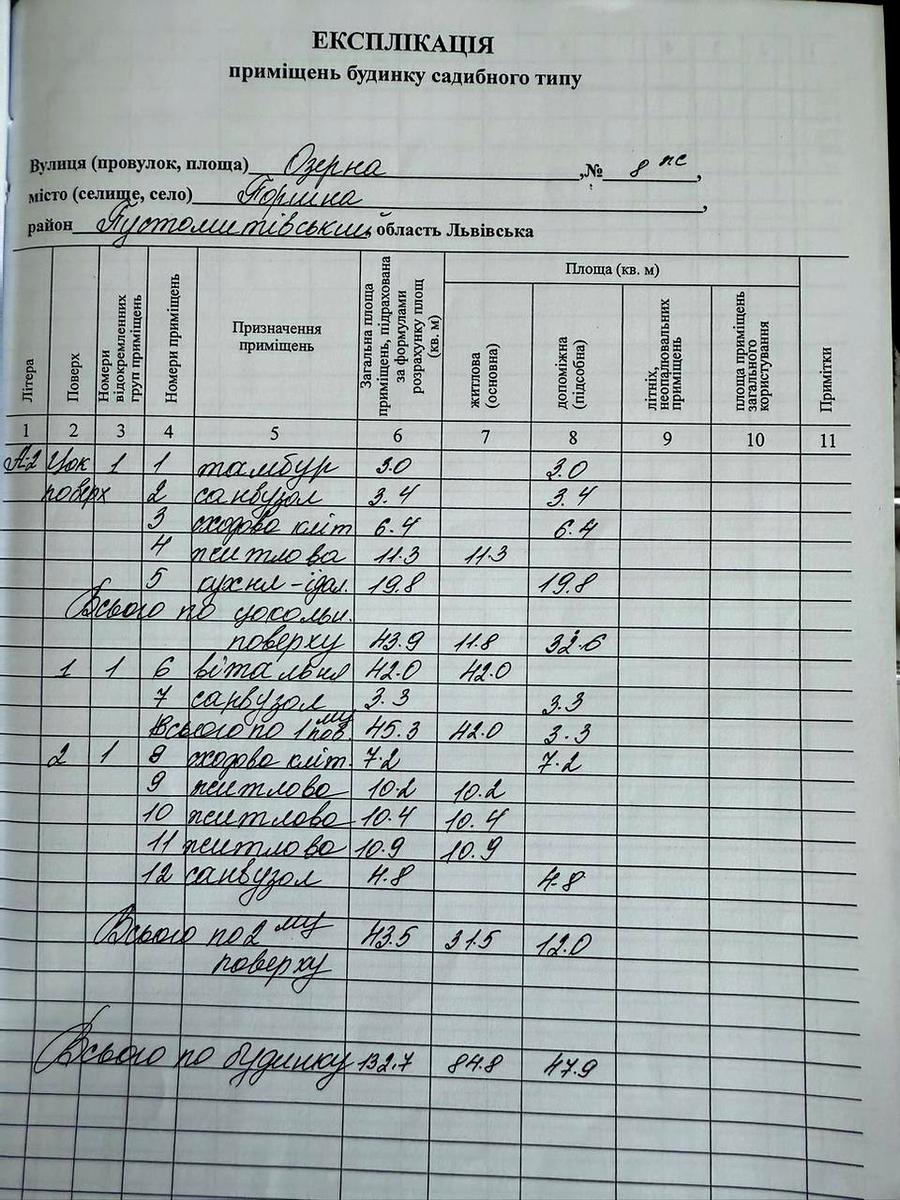 ЕКСПЛІКАЦІЯ
приміщень будинку садибного типу
Вулиця (провулок, площа) Озерна ,№ 8 пс ,
місто (селище, село) Поршна ,
район Пустомитівський, область Львівська
Літера
Поверх
Номери відокремленних груп приміщень
Номери приміщень
Призначення приміщень
Загальна площа приміщень, підрахована за формулами розрахунку площ (кв. м)
Площа (кв. м)
житлова (основна)
допоміжна (підсобна)
літніх, неопалювальних приміщень
площа приміщень загального користування
Примітки
1 2 3 4 5 6 7 8 9 10 11
А-2 Цок 1 1 тамбур 3.0 3.0
поверх 2 санвузол 3.4 3.4
3 сходова кліт 6.4 6.4
4 житлова 11.3 11.3
5 кухня-їдал. 19.8 19.8
Всього по цокольн.
поверху 43.9 11.8 32.6
1 1 6 вітальня 42.0 42.0
7 санвузол 3.3 3.3
Всього по 1му пов. 45.3 42.0 3.3
2 1 8 сходова кліт. 7.2 7.2
9 житлова 10.2 10.2
10 житлова 10.4 10.4
11 житлова 10.9 10.9
12 санвузол 4.8 4.8
Всього по 2 му 43.5 31.5 12.0
поверху
Всього по будинку 132.7 84.8 47.9